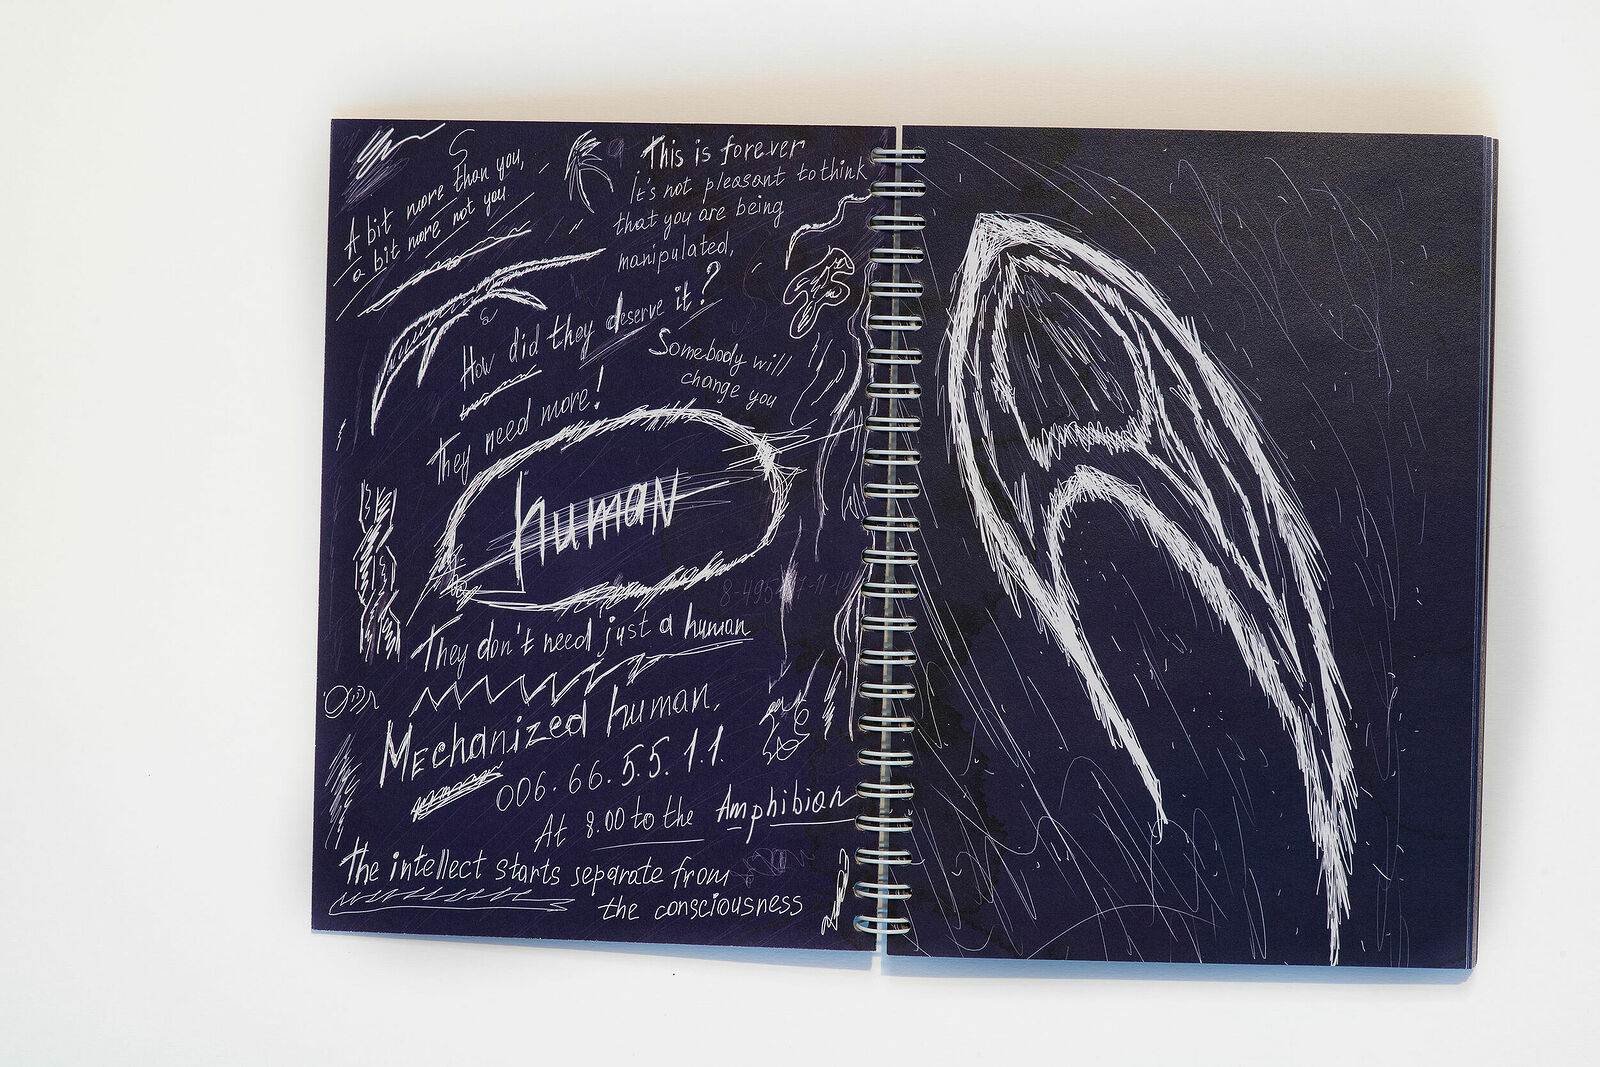 A bit more than you,
a bit more not you
This is forever
It's not pleasant to think
that you are being
manipulated,
How did they deserve it?
Somebody will
change you
They need more!
human
They don't need just a human
Mechanized human.
006.66.5.5.1.1.
At 8.00 to the Amphibian
The intellect starts separate from
the consciousness